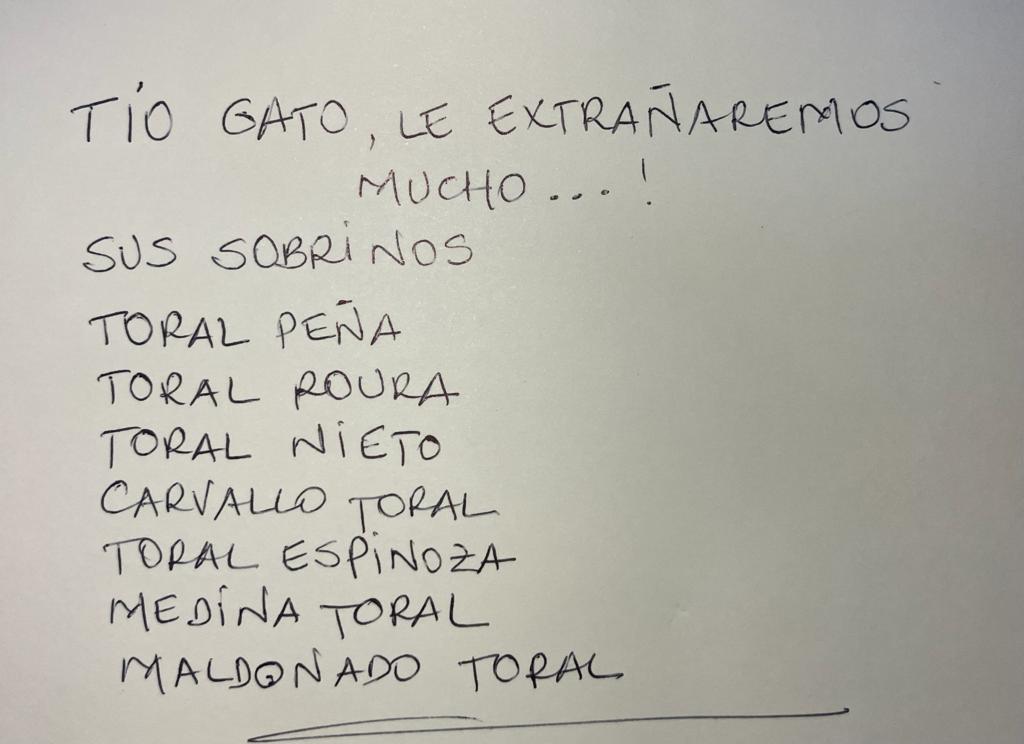 TÍO GATO, LE EXTRAÑAREMOS
MUCHO...!
SUS SOBRINOS
TORAL PEÑA
TORAL ROURA
TORAL NIETO
CARVALLO TORAL
TORAL ESPINOZA
MEDINA TORAL
MALDONADO TORAL